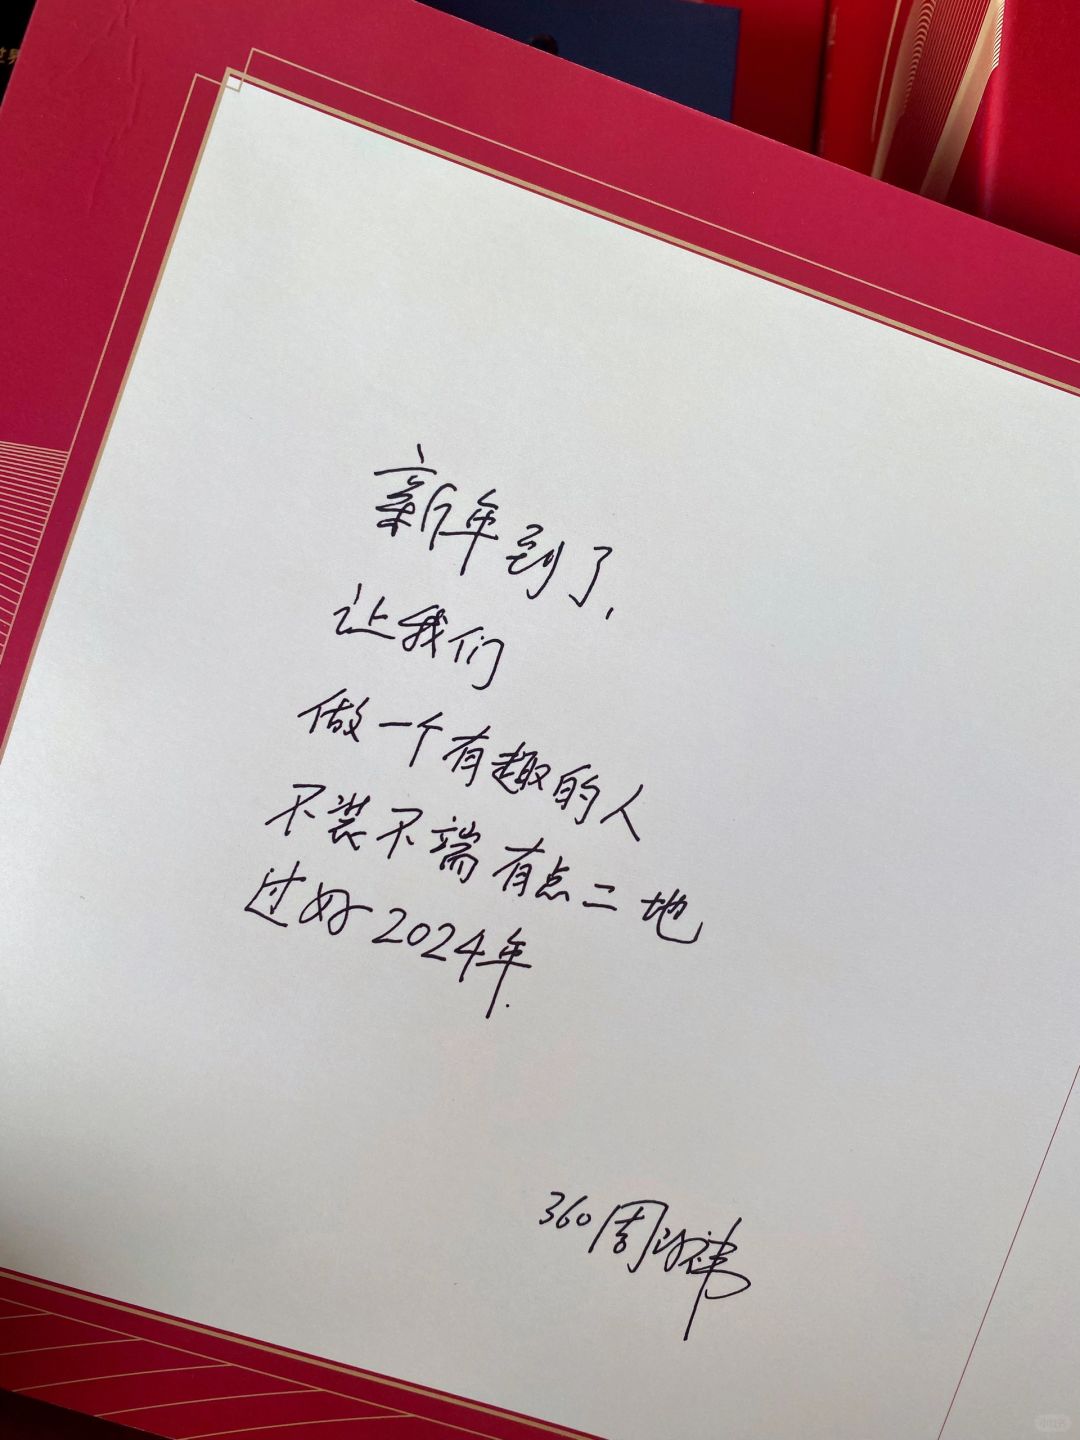 新年到了,
让我们
做一个有趣的人
不装不端有点二地
过好2024年.
360周鸿祎